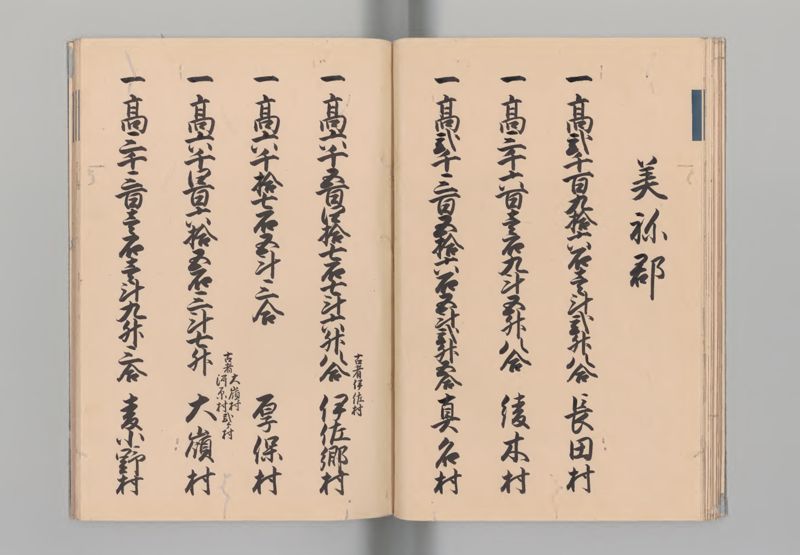 美祢郡
一高弐千百九拾六石壱斗弐升八合 長田村
一高三千六百壱石九斗五升八合 綾木村
一高弐千三百五拾六石五斗弐升五合 真名村
一高六千五百四拾七石七斗六升八合 伊佐郷村
古者伊佐村
一高六千拾七石五斗三合 厚保村
一高六千四百六拾五石三斗七升 大嶺村
古者大嶺村
河原村弐ヶ村
一高三千三百壱石壱斗九升三合 麦小野村